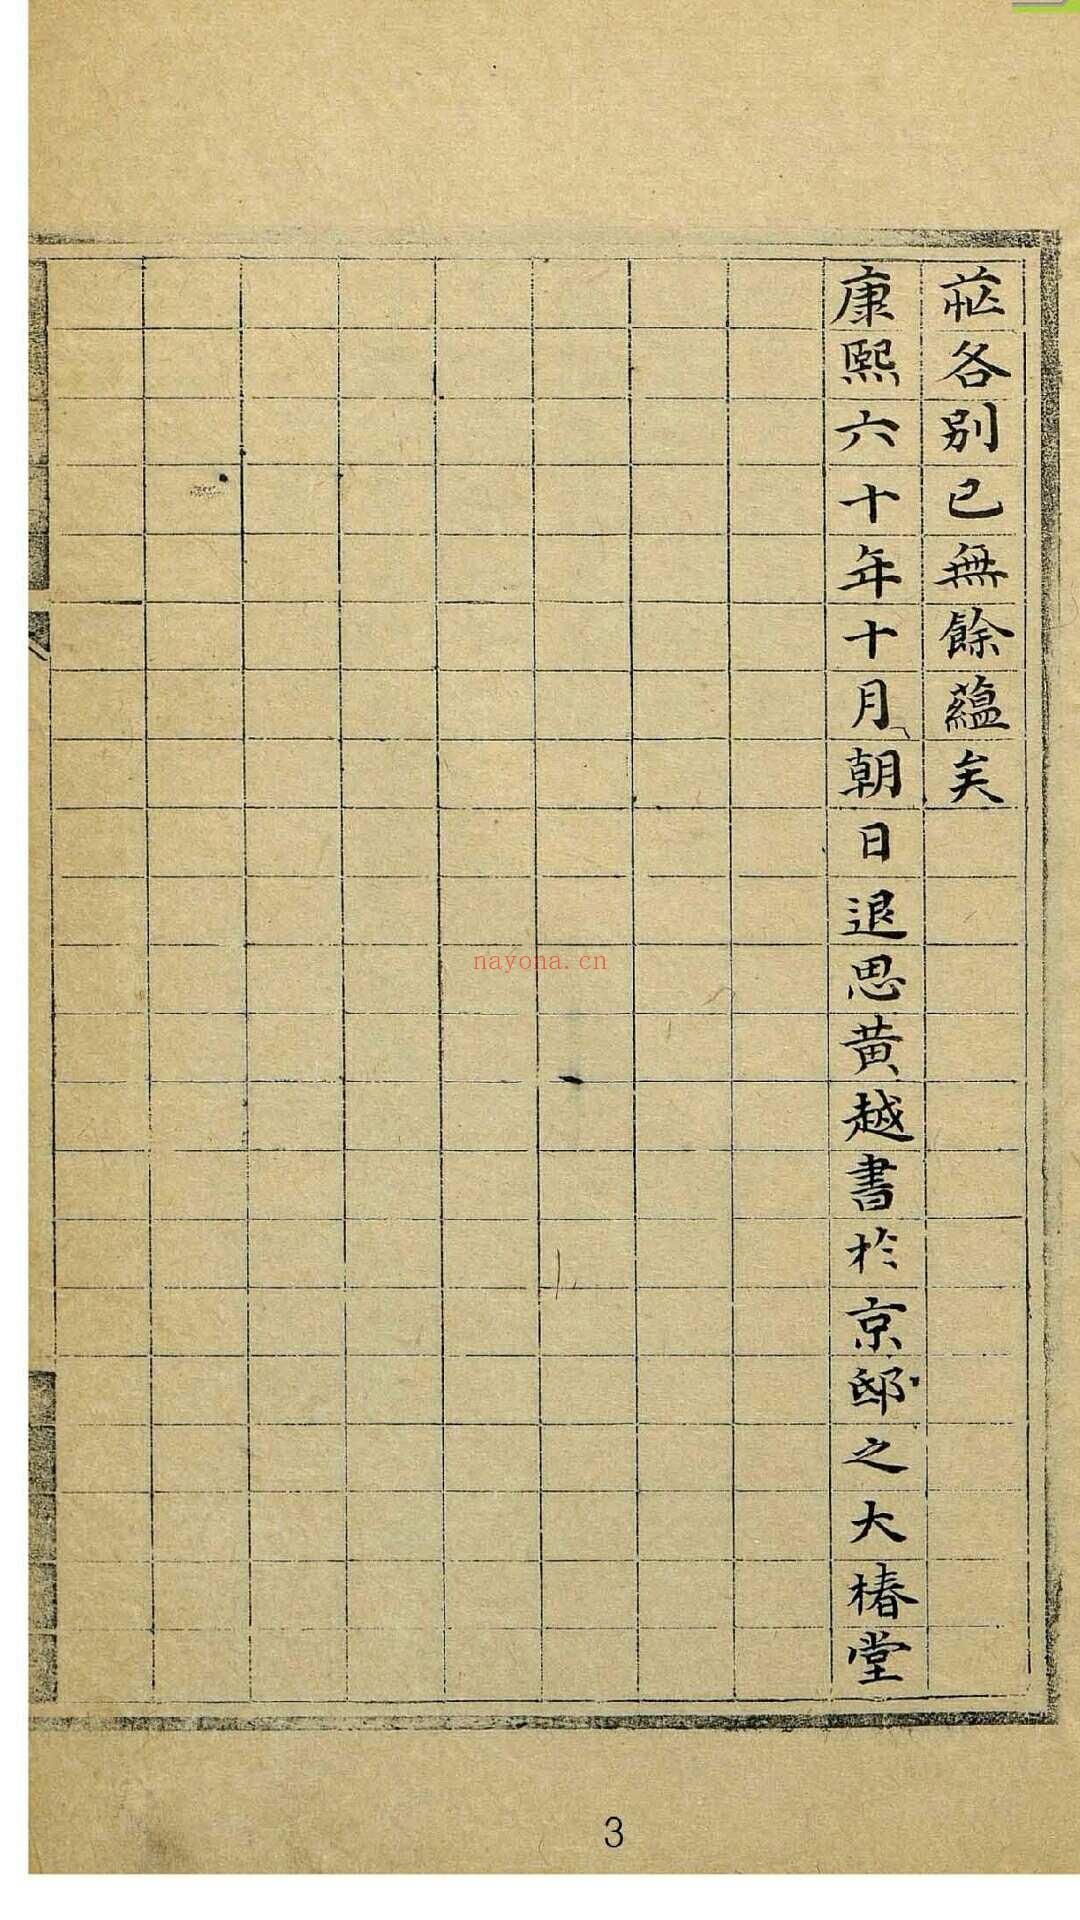 莊各別已無餘蘊矣
康熙六十年十月朝日退思黄越書於京邸之大椿堂
nayona.cn
3